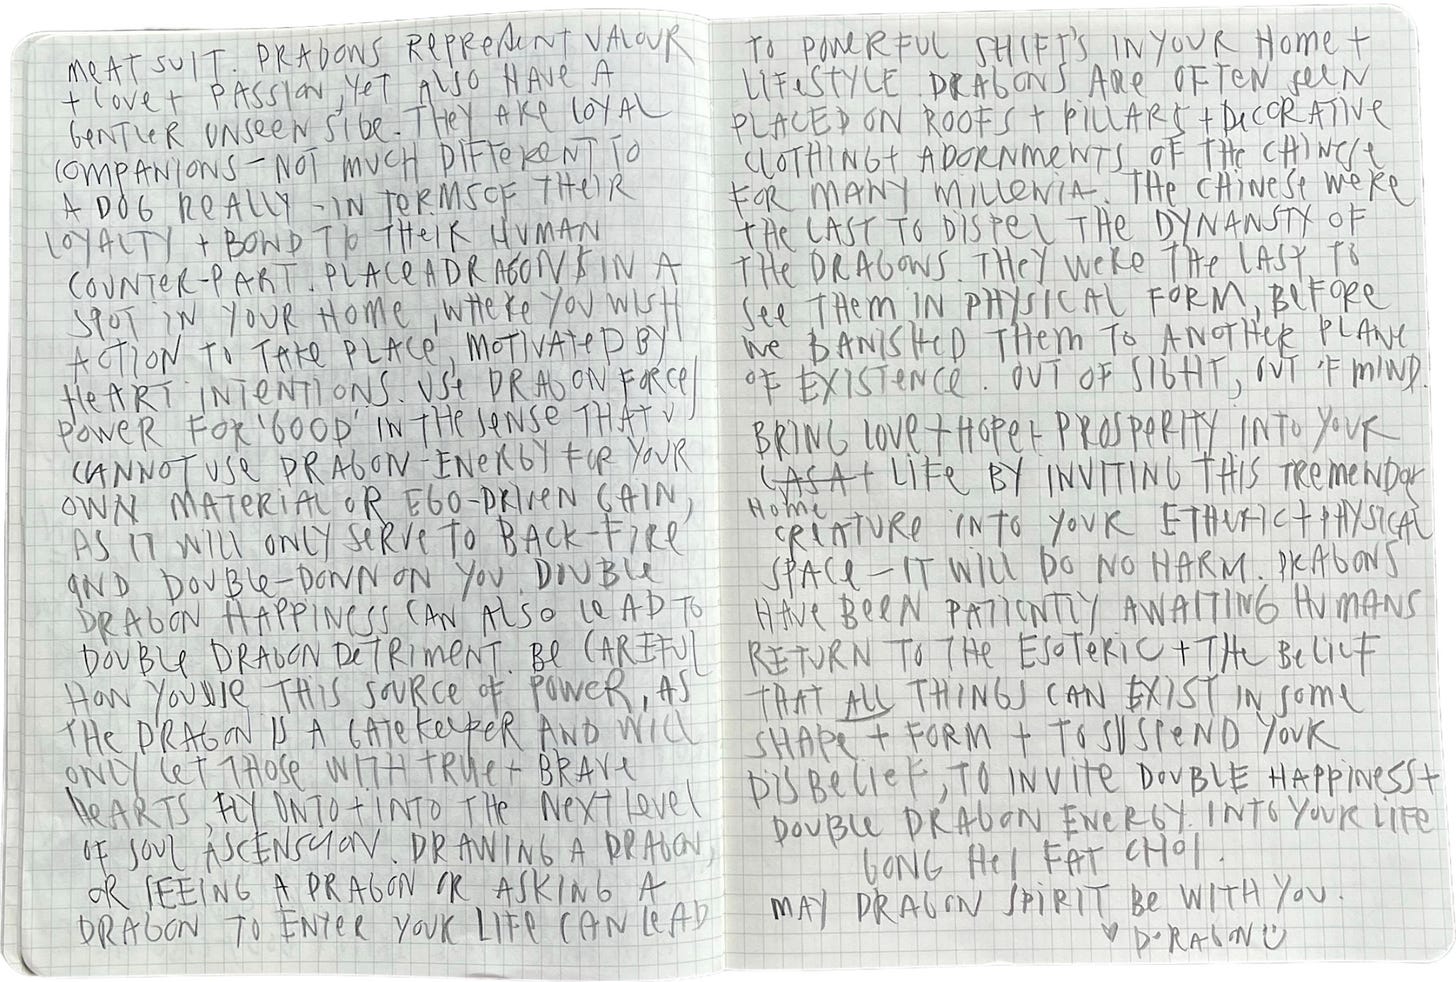 MEAT SUIT. DRAGONS REPRESENT VALOUR
+ LOVE + PASSION, YET ALSO HAVE A
GENTLER UNSEEN SIDE. THEY ARE LOYAL
COMPANIONS - NOT MUCH DIFFERENT TO
A DOG REALLY - IN TERMS OF THEIR
LOYALTY + BOND TO THEIR HUMAN
COUNTER-PART. PLACE A DRAGON/S IN A
SPOT IN YOUR HOME, WHERE YOU WISH
ACTION TO TAKE PLACE, MOTIVATED BY
HEART INTENTIONS. USE DRAGON FORCE/
POWER FOR 'GOOD' IN THE SENSE THAT U
CANNOT USE DRAGON-ENERGY FOR YOUR
OWN MATERIAL OR EGO-DRIVEN GAIN,
AS IT WILL ONLY SERVE TO BACK-FIRE
AND DOUBLE-DOWN ON YOU. DOUBLE
DRAGON HAPPINESS CAN ALSO LEAD TO
DOUBLE DRAGON DETRIMENT. BE CAREFUL
HOW YOU USE THIS SOURCE OF POWER, AS
THE DRAGON IS A GATEKEEPER AND WILL
ONLY LET THOSE WITH TRUE + BRAVE
HEARTS, FLY ONTO + INTO THE NEXT LEVEL
OF SOUL ASCENSION. DRAWING A DRAGON,
OR SEEING A DRAGON OR ASKING A
DRAGON TO ENTER YOUR LIFE CAN LEAD
TO POWERFUL SHIFT'S IN YOUR HOME +
LIFESTYLE. DRAGONS ARE OFTEN SEEN
PLACED ON ROOFS + PILLARS + DECORATIVE
CLOTHING + ADORNMENTS OF THE CHINESE
FOR MANY MILLENIA. THE CHINESE WERE
THE LAST TO DISPEL THE DYNANSTY OF
THE DRAGONS. THEY WERE THE LAST TO
SEE THEM IN PHYSICAL FORM, BEFORE
WE BANISHED THEM TO ANOTHER PLANE
OF EXISTENCE. OUT OF SIGHT, OUT 'F MIND.
BRING LOVE + HOPE + PROSPERITY INTO YOUR
CASA + LIFE BY INVITING THIS TREMENDOR
HOME
CREATURE INTO YOUR ETHERIC + PHYSICAL
SPACE - IT WILL DO NO HARM. DRAGONS
HAVE BEEN PATIENTLY AWAITING HUMANS
RETURN TO THE ESOTERIC + THE BELIEF
THAT ALL THINGS CAN EXIST IN SOME
SHAPE + FORM + TO SUSPEND YOUR
DISBELIEF, TO INVITE DOUBLE HAPPINESS +
DOUBLE DRAGON ENERGY. INTO YOUR LIFE
GONG HEI FAT CHOI.
MAY DRAGON SPIRIT BE WITH YOU.
♥ D.RAGON